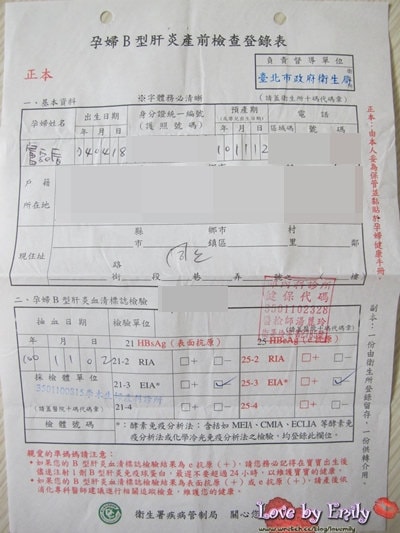 孕婦B型肝炎產前檢查登錄表
正本
負責督導單位
臺北市政府衛生局
(請蓋衛生所十碼代碼章)
一、基本資料
※字體務必清晰
孕婦姓名
出生日期
身分證統一編號
(護照號碼)
預產期
電話
年 月 日
年 月 日
區域碼
號碼
740418
101112
戶籍
所在地
現住址
縣
市
鄉市
鎮區
村
里
鄰
路
街
段
巷
弄
號之
樓
二、孕婦B型肝炎血清標誌檢驗
健保代碼
3501102328
抽血日期
檢驗單位
年 月 日
21 HBsAg(表面抗原)
25 HBeAg(e抗原)
100 11 02
21-2 RIA □+ □−
25-2 RIA □+ □−
採檢體單位
21-3 EIA* □+ □−
25-3 EIA* □+ □−
3501100315
(請蓋醫院十碼代碼章)
21-4 □+ □−
25-4 □+ □−
檢體號碼
*:酵素免疫分析法:含括如MEIA、CMIA、ECLIA等酵素免
疫分析法或化學冷光免疫分析法之檢驗,均登錄此欄位。
正本:由本人妥為保管並黏貼於孕婦健康手冊。
副本:一份由衛生所登錄留存,一份供轉介用。
親愛的準媽媽請注意:
*如果您的B型肝炎血清標誌檢驗結果為e抗原(+),請您務必記得在寶寶出生後
儘速注射1劑B型肝炎免疫球蛋白,最遲不要超過24小時,以維護寶寶的健康。
*如果您的B型肝炎血清標誌檢驗結果為表面抗原(+)或e抗原(+),請產後依
消化專科醫師建議進行相關追蹤檢查,維護您的健康。
衛生署疾病管制局
關心您
Love by Emily
www.wretch.cc/blog/lovemily